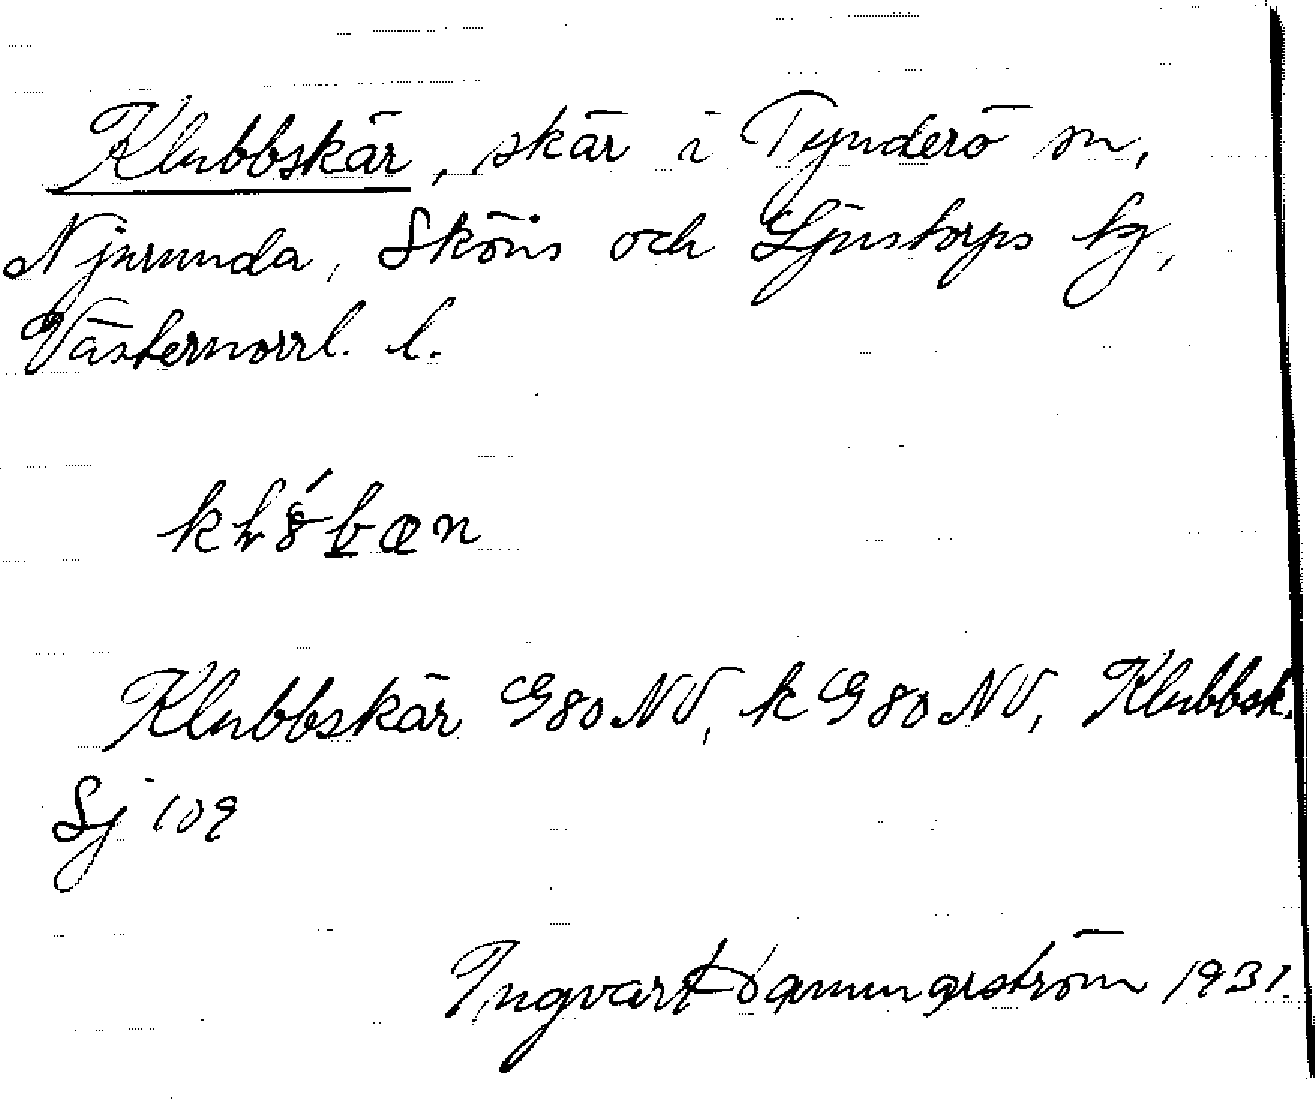 Klubbskär, skär i Tynderö sn,
Njurunda, Sköns och Ljustorps tg,
Västernorrl. l.
Klubbskär G80NV, k G80NV, Klubbsk.
Sj 109
Ingvar 1931.